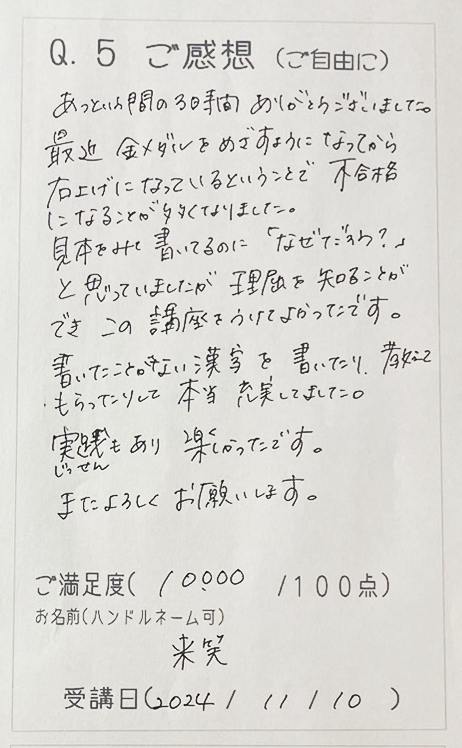 Q.5 ご感想(ご自由に)
あっという間の3時間 ありがとうございました。
最近 金メダルをめざすようになってから
右上げになっているということで 不合格
になることが多くなりました。
見本をみて書いてるのに「なぜだろう?」
と思っていましたが 理屈を知ることが
でき この講座をうけてよかったです。
書いたことがない漢字を書いたり、教えて
もらったりして 本当 充実してました。
実践もあり 楽しかったです。
じっせん
またよろしくお願いします。
ご満足度( 10000 /100点)
お名前(ハンドルネーム可)
来笑
受講日(2024/11/10 )